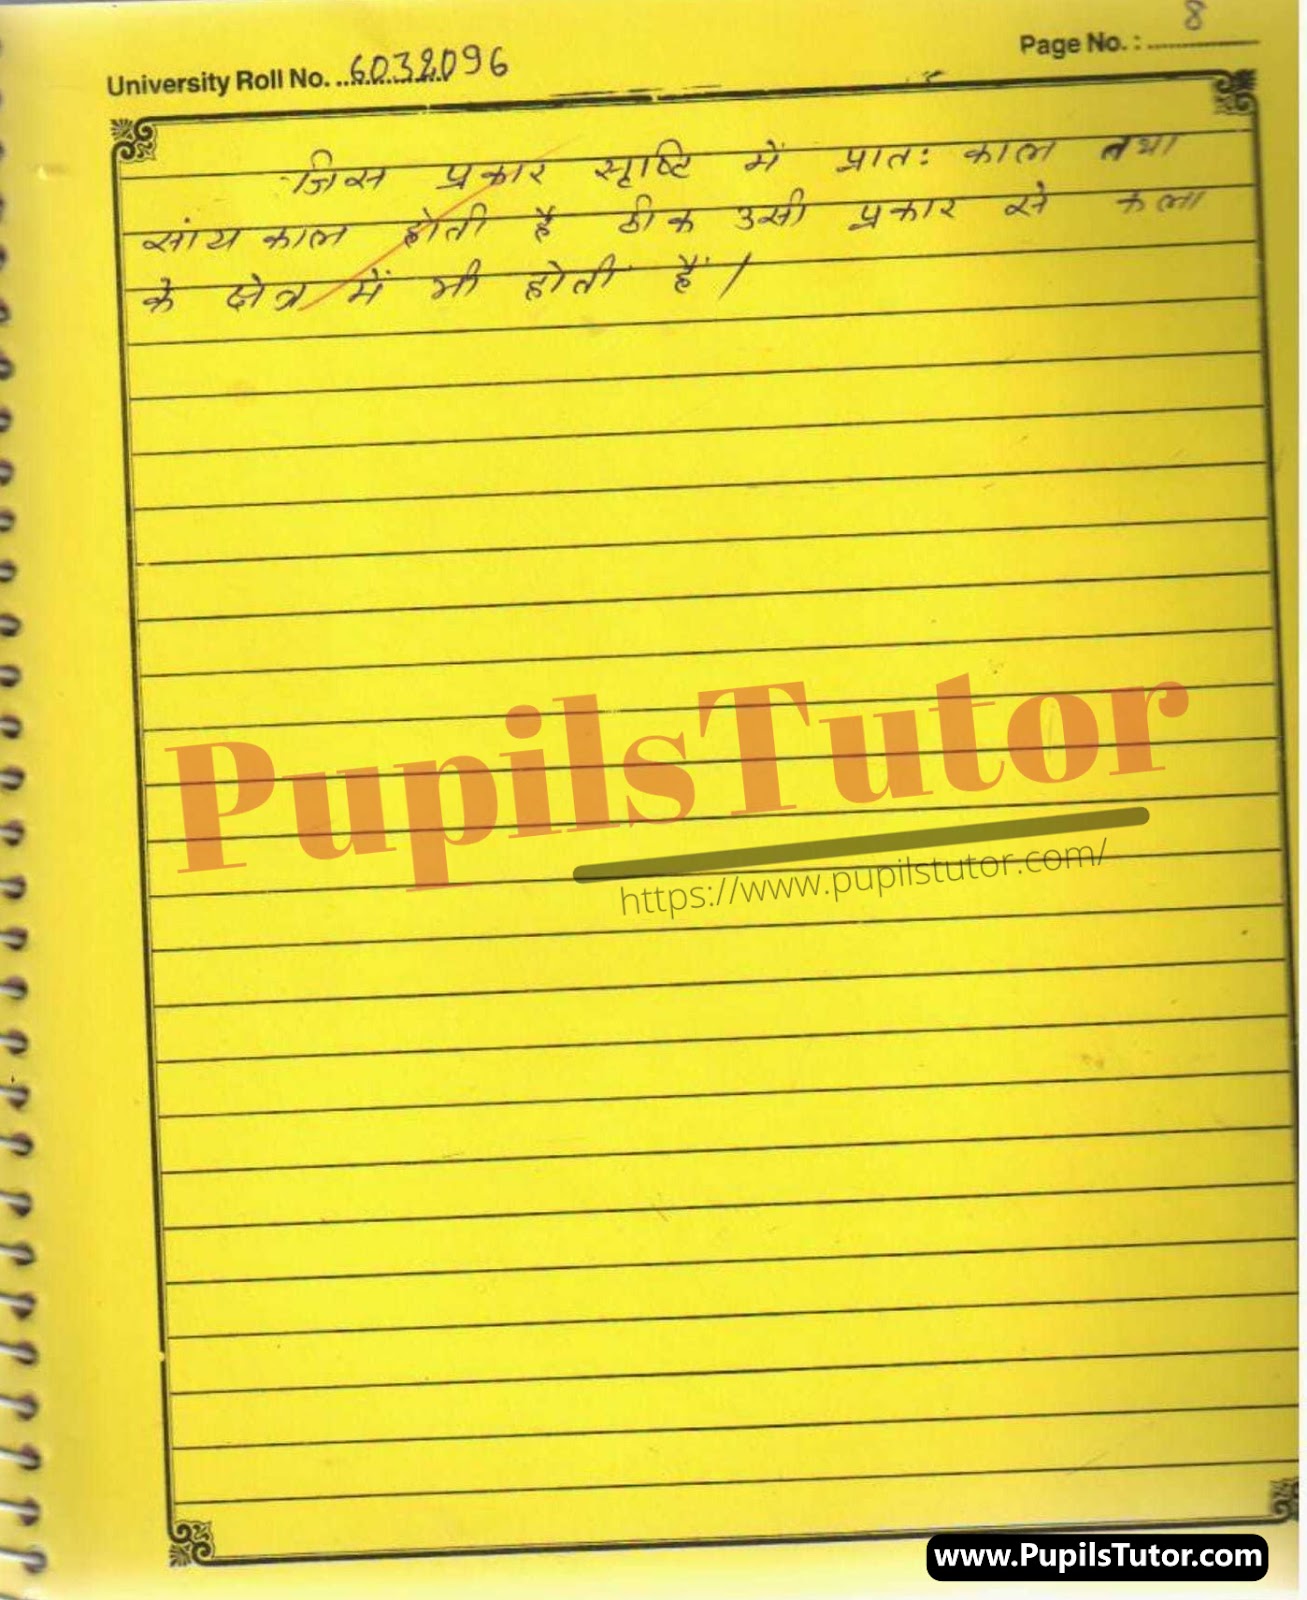 University Roll No. 6032096
Page No. : 8
जिस प्रकार सृष्टि में प्रातः काल तथा
सांय काल होती है ठीक उसी प्रकार से कला
के क्षेत्र में भी होती हैं /
PupilsTutor
https://www.pupilstutor.com/
www.PupilsTutor.com